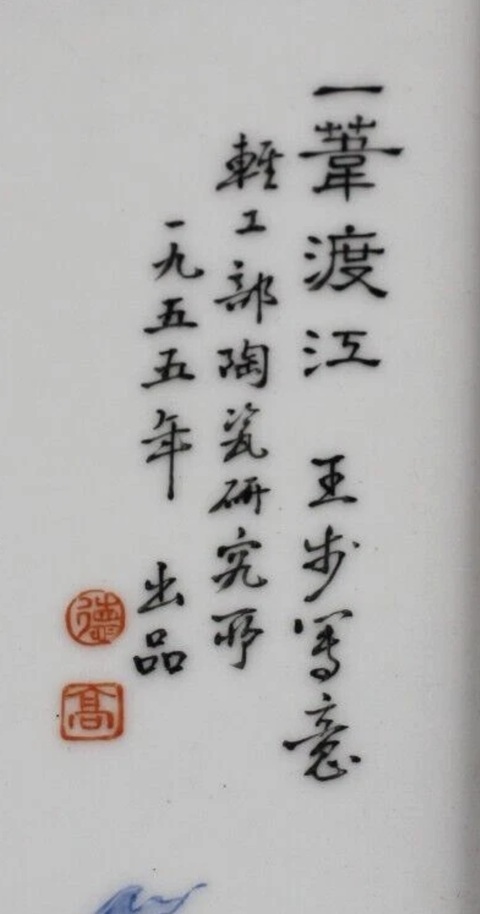 一葦渡江 王步写意
輕工部陶瓷研究所
一九五五年 出品
德
高